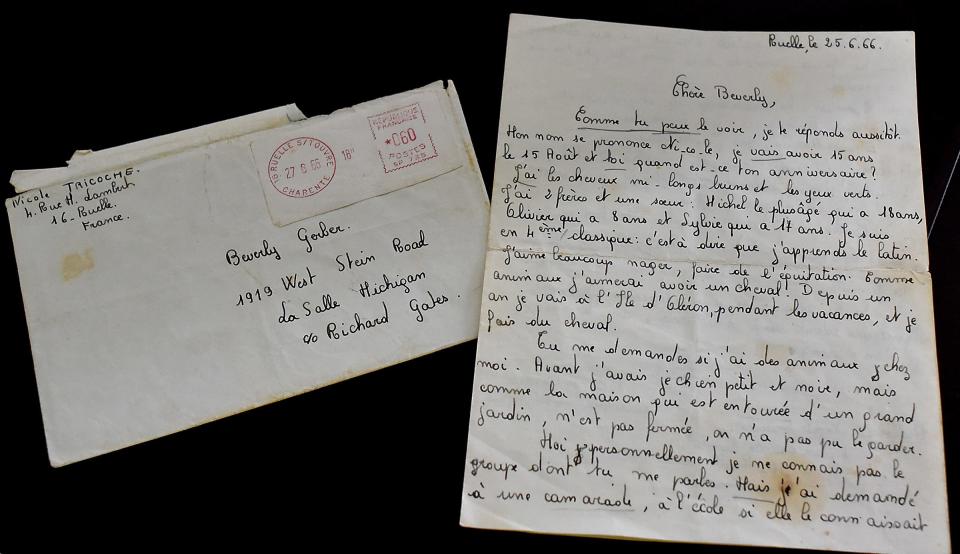 Nicole TRICOCHE.
4. Rue H. Lambert
16 - Ruelle.
France.
16 RUELLE S/TOUVRE
27 6 66 18H
CHARENTE
REPUBLIQUE
FRANCAISE
*0,60
POSTES
Beverly Gerber.
1919 West Stein Road
La Salle Michigan
c/o Richard Gates.
Ruelle, le 25.6.66.
Chère Beverly,
Comme tu peux le voir, je te réponds aussitôt.
Mon nom se prononce Ni-co-le, je vais avoir 15 ans
le 15 Août et toi quand est-ce ton anniversaire?
J'ai les cheveux mi-longs bruns et les yeux verts.
J'ai 2 frères et une sœur: Michel le plus âgé qui a 18 ans,
Olivier qui a 8 ans et Sylvie qui a 17 ans. Je suis
en 4ème classique: c'est à dire que j'apprends le latin.
J'aime beaucoup nager, faire de l'équitation. Comme
animaux j'aimerai avoir un cheval! Depuis un
an je vais à l'Ile d'Oléron, pendant les vacances, et je
fais du cheval.
Tu me demandes si j'ai des animaux chez
moi. Avant j'avais je chien petit et noir, mais
comme la maison qui est entourée d'un grand
jardin, n'est pas fermée, on n'a pas pu le garder.
Moi personnellement je ne connais pas le
groupe dont tu me parles. Mais j'ai demandé
à une camarade, à l'école si elle le connaissait